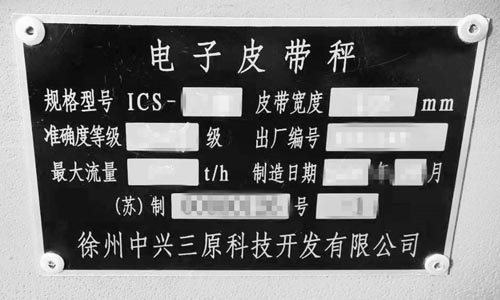 电子皮带秤
规格型号 ICS- 皮带宽度 mm
准确度等级 级 出厂编号
最大流量 t/h 制造日期 年 月
(苏)制 号
徐州中兴三原科技开发有限公司